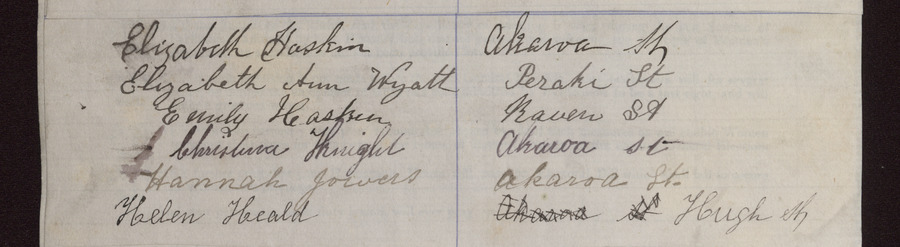 Elizabeth Haskin Akaroa St
Elizabeth Ann Wyatt Peraki St
Emily Haskin Raven St
Christina Knight Akaroa st
Hannah Jowers Akaroa St.
Helen Heald Akaroa St Hugh St